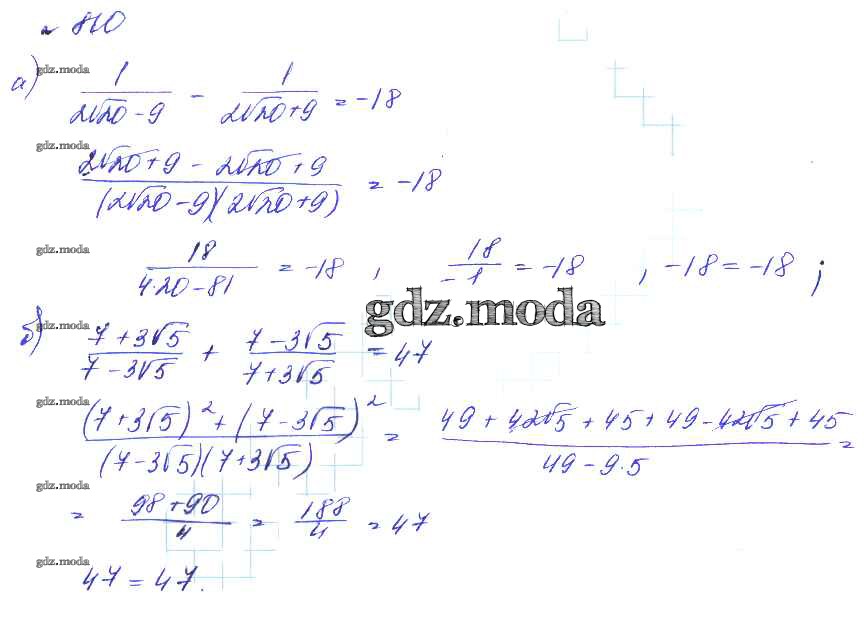 № 810
а) gdz.moda 1/(2√20 - 9) - 1/(2√20 + 9) = -18
gdz.moda (2√20 + 9 - 2√20 + 9)/((2√20 - 9)(2√20 + 9)) = -18
gdz.moda 18/(4·20 - 81) = -18 , 18/(-1) = -18 , -18 = -18 ;
gdz.moda
б) gdz.moda (7 + 3√5)/(7 - 3√5) + (7 - 3√5)/(7 + 3√5) = 47
gdz.moda ((7 + 3√5)² + (7 - 3√5)²)/((7 - 3√5)(7 + 3√5)) = (49 + 42√5 + 45 + 49 - 42√5 + 45)/(49 - 9·5) =
gdz.moda = (98 + 90)/4 = 188/4 = 47
gdz.moda 47 = 47.